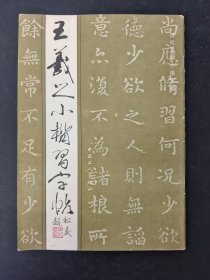 尚應修習何況少欲
德少欲之人則無諂
意亦復不為諸根所
王羲之小楷習字帖
餘無常不足有少欲